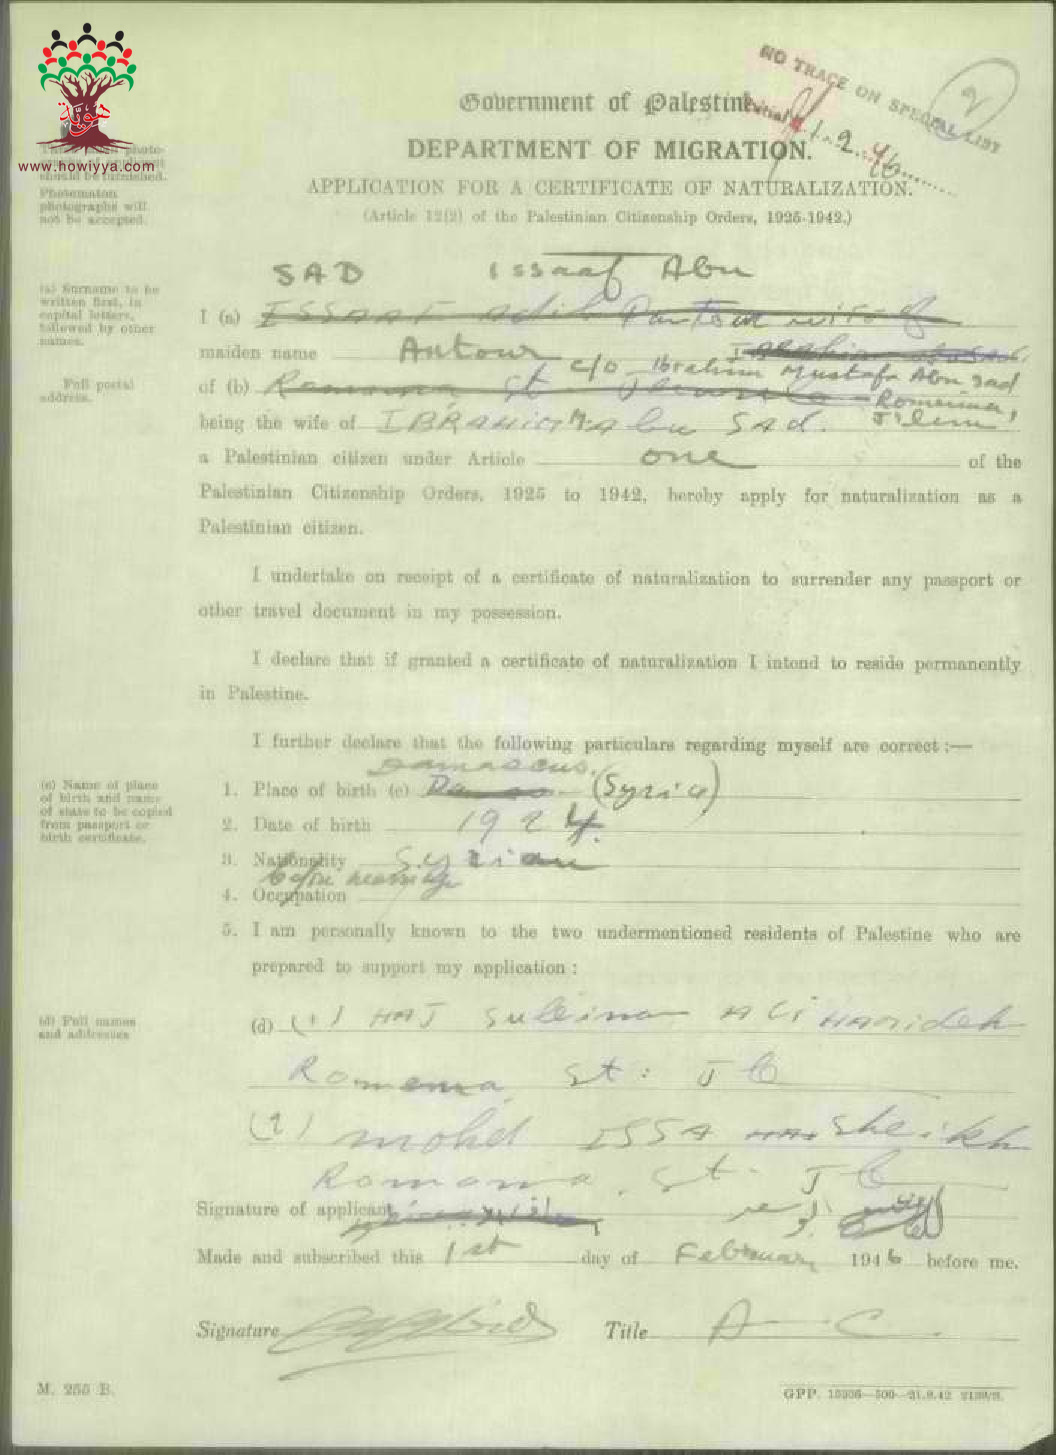 هوية
www.howiyya.com
NO TRACE ON SPECIAL LIST
Initial
1.2.46
2
Government of Palestine
DEPARTMENT OF MIGRATION.
APPLICATION FOR A CERTIFICATE OF NATURALIZATION.
(Article 12(2) of the Palestinian Citizenship Orders, 1925-1942.)
photo-
should be furnished.
Photomaton
photographs will
not be accepted.
(a) Surname to be
written first, in
capital letters,
followed by other
names.
SAD Issaaf Abu
I (a) ISSAAF Adib Pantour wife of
maiden name Antour Ibrahim
c/o Ibrahim Mustafa Abu Sad
Full postal
address.
of (b) Romema St
Romeima,
J'lem
being the wife of IBRAHIM M. Abu SAd.
a Palestinian citizen under Article one of the
Palestinian Citizenship Orders, 1925 to 1942, hereby apply for naturalization as a
Palestinian citizen.
I undertake on receipt of a certificate of naturalization to surrender any passport or
other travel document in my possession.
I declare that if granted a certificate of naturalization I intend to reside permanently
in Palestine.
I further declare that the following particulars regarding myself are correct :—
(c) Name of place
of birth and name
of state to be copied
from passport or
birth certificate.
Damascus.
1. Place of birth (c) (Syria)
2. Date of birth 1924.
3. Nationality Syrian
before marriage
4. Occupation
5. I am personally known to the two undermentioned residents of Palestine who are
prepared to support my application :
(d) Full names
and addresses
(d) (1) HAJ Suleiman ALi HAMideh
Romema St: J
(2) Mohd ISSA Sheikh
Romama. St. J
Signature of applicant
Made and subscribed this 1st day of February 1946 before me.
Signature Title A C.
M. 255 B.
GPP. 15936—500—21.9.42